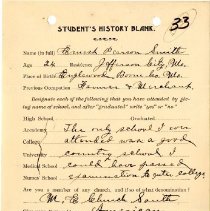 33
STUDENT'S HISTORY BLANK.
Name (in full) Enoch Carson Smith
Age 24 Residence Jefferson City, Mo.
Place of Birth Englewood Boone Co. Mo.
Previous Occupation Farmer & Merchant
Designate each of the following that you have attended by giving name of school, and after "graduated" write "yes" or "no"
High School Graduated
Academy The only school I ever
College attended was a good
University country school, I
Medical could have passed
Nurses School examination to enter college.
Are you a member of any church, and if so, of what denomination?
M. E. Church South
American